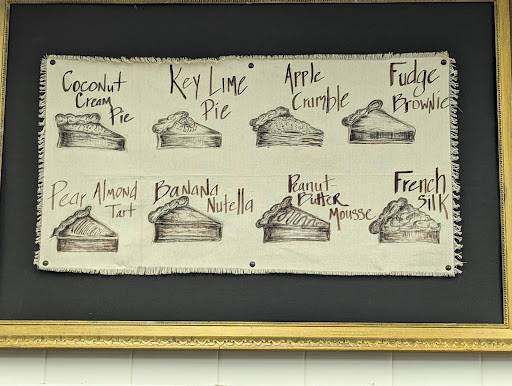 Coconut
Cream
Pie
Key Lime
Pie
Apple
Crumble
Fudge
Brownie
Pear Almond
Tart
Banana
Nutella
Peanut-
Butter
Mousse
French
Silk